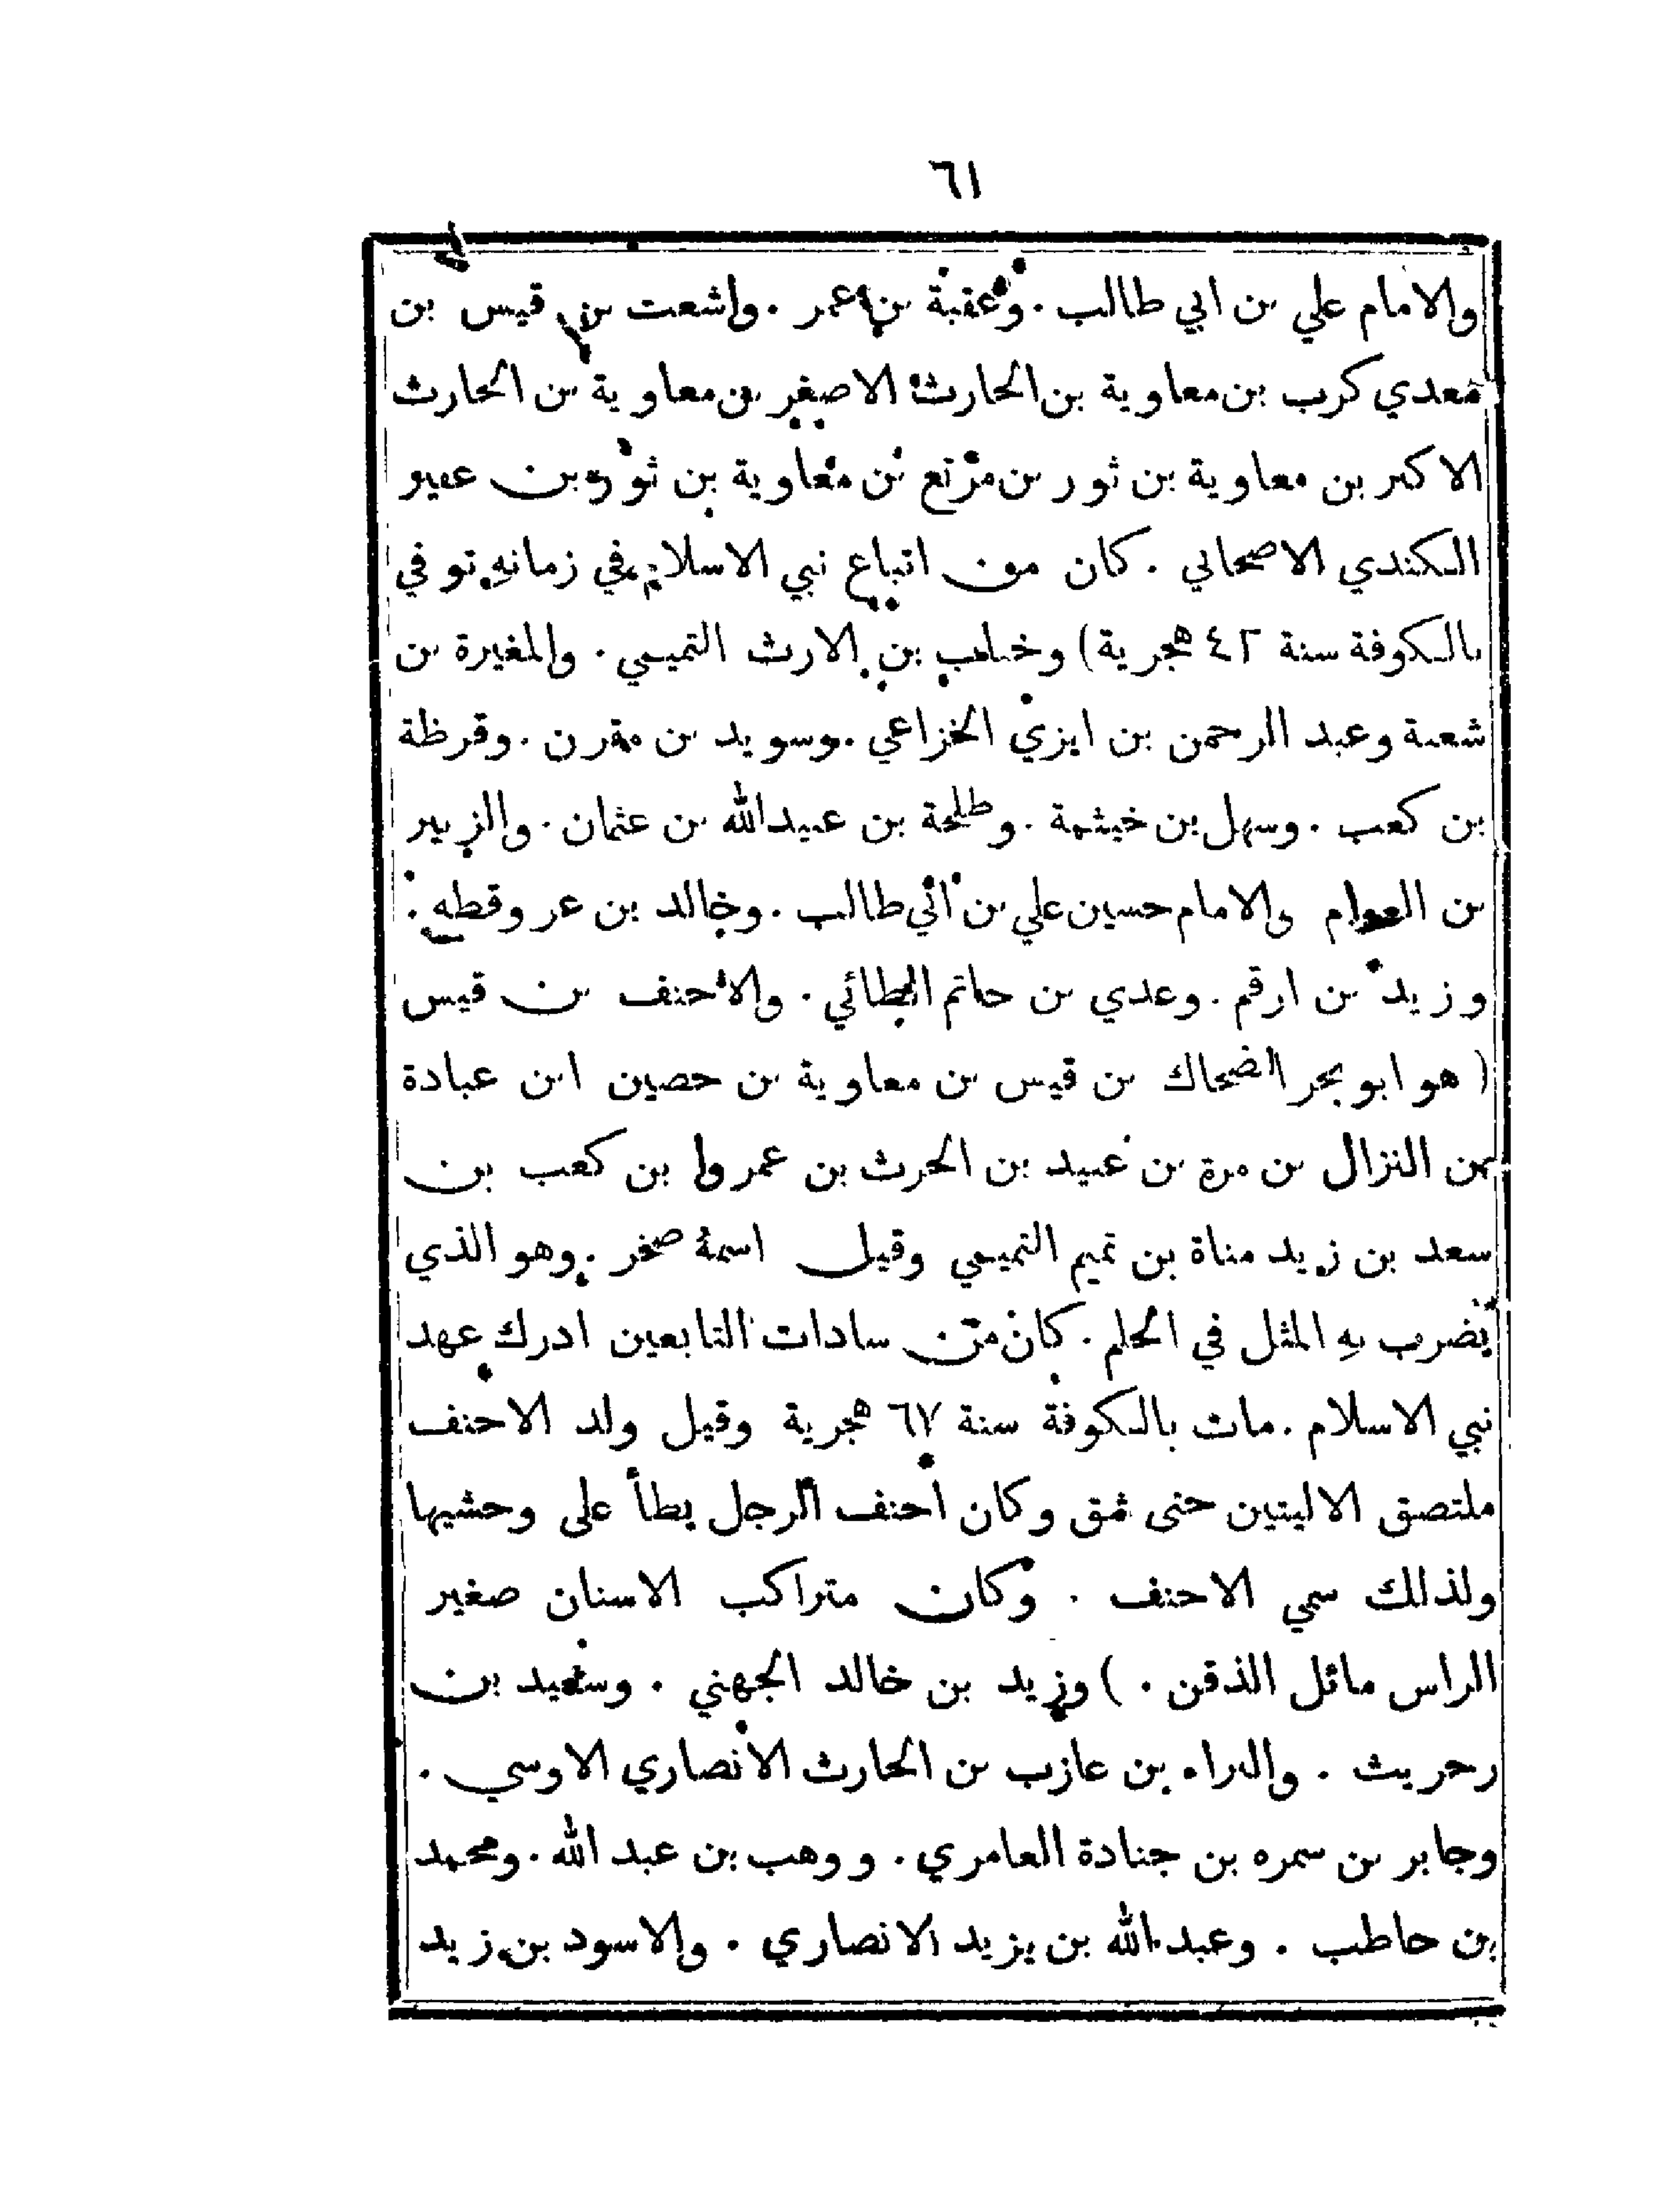 ٦١
والامام علي بن ابي طالب . وعقبة بن عمر . واشعت بن قيس بن
معدي كرب بن معاوية بن الحارث الاصغر بن معاوية بن الحارث
الاكبر بن معاوية بن ثور بن مرتع بن معاوية بن ثور بن عفير
الكندي الاصحابي . كان من اتباع نبي الاسلام في زمانه توفي
بالكوفة سنة ٤٢ هجرية) وخباب بن الارث التميمي . والمغيرة بن
شعبة وعبد الرحمن بن ايزي الخزاعي . وسويد بن مقرن . وقرظة
بن كعب . وسهل بن خيثمة . وطلحة بن عبيدالله بن عثمان . والزبير
بن العوام والامام حسين علي بن ابي طالب . وخالد بن عر وقطه .
وزيد بن ارقم . وعدي بن حاتم الطائي . والاحنف بن قيس
( هو ابو بحر الضحاك بن قيس بن معاوية بن حصين ابن عبادة
بن النزال بن مرة بن عبيد بن الحرث بن عمرو بن كعب بن
سعد بن زيد مناة بن تميم التميمي وقيل اسمهُ صخر . وهو الذي
يضرب بهِ المثل في الحلم . كان من سادات التابعين ادرك عهد
نبي الاسلام . مات بالكوفة سنة ٦٧ هجرية وقيل ولد الاحنف
ملتصق الاليتين حتى شق وكان احنف الرجل يطأ على وحشيها
ولذلك سمي الاحنف . وكان متراكب الاسنان صغير
الراس مائل الذقن . ) وزيد بن خالد الجهني . وسعيد بن
حريث . والبراء بن عازب بن الحارث الانصاري الاوسي .
وجابر بن سمره بن جنادة العامري . ووهب بن عبد الله . ومحمد
بن حاطب . وعبد الله بن يزيد الانصاري . والاسود بن زيد